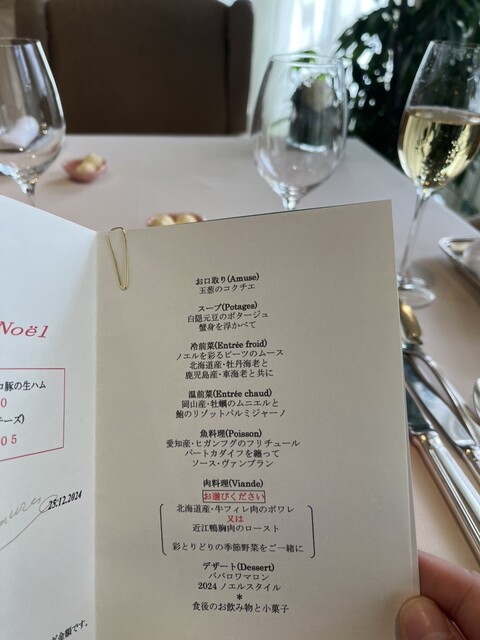 Noël
ロ豚の生ハム
0
チーズ)
05
25.12.2024
金額です。
お口取り(Amuse)
玉葱のコクチエ
スープ(Potages)
白隠元豆のポタージュ
蟹身を浮かべて
冷前菜(Entrée froid)
ノエルを彩るビーツのムース
北海道産・牡丹海老と
鹿児島産・車海老と共に
温前菜(Entrée chaud)
岡山産・牡蠣のムニエルと
鮑のリゾットパルミジャーノ
魚料理(Poisson)
愛知産・ヒガンフグのフリチュール
パートカダイフを纏って
ソース・ヴァンブラン
肉料理(Viande)
お選びください
北海道産・牛フィレ肉のポワレ
又は
近江鴨胸肉のロースト
彩とりどりの季節野菜をご一緒に
デザート(Dessert)
ババロワマロン
2024 ノエルスタイル
*
食後のお飲み物と小菓子